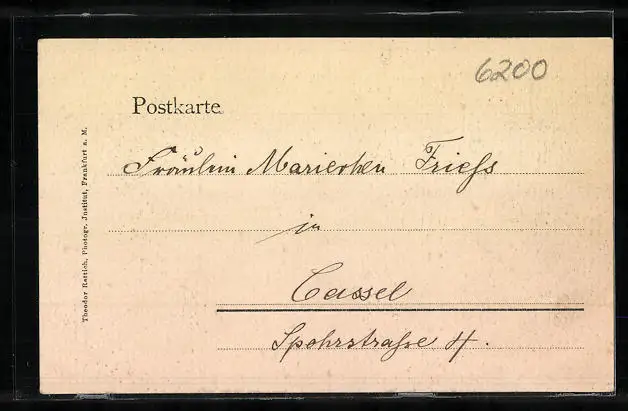 6200
Postkarte
Fräulein Mariechen Frieß
in
Cassel
Spohrstraße 4.
Theodor Rattich, Photogr. Institut, Frankfurt a. M.